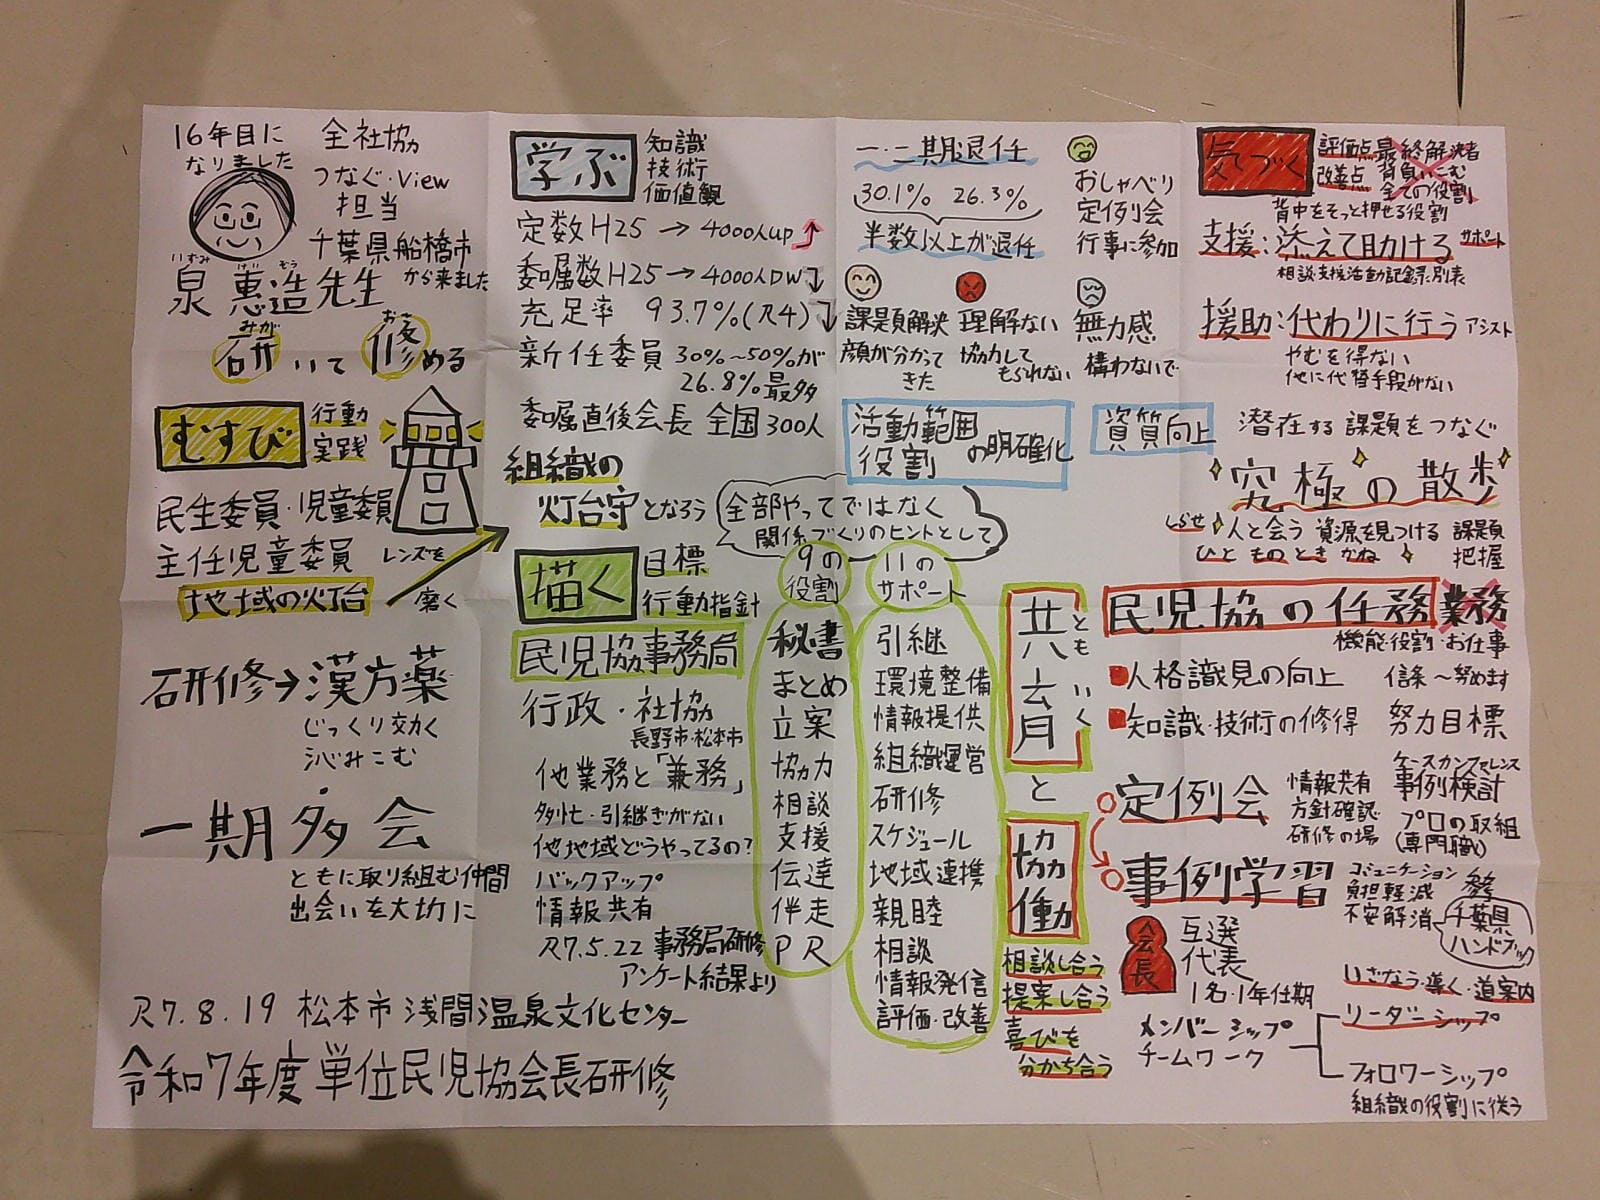 16年目に
なりました
全社協
つなぐ・View
担当
千葉県船橋市
から来ました
いずみ けいぞう
泉 惠造先生
みが おさ
研いて修める
むすび
行動
実践
民生委員・児童委員
主任児童委員
地域の灯台
レンズを
磨く
研修→漢方薬
じっくり効く
沁みこむ
一期多会
ともに取り組む仲間
出会いを大切に
R7.8.19 松本市浅間温泉文化センター
令和7年度単位民児協会長研修
学ぶ
知識
技術
価値観
定数H25→4000人up
委嘱数H25→4000人DW
充足率 93.7%(R4)
新任委員 30%~50%が
26.8%最多
委嘱直後会長 全国300人
組織の
灯台守となろう
描く
目標
行動指針
民児協事務局
行政・社協
長野市・松本市
他業務と「兼務」
多忙・引継ぎがない
他地域どうやってるの?
バックアップ
情報共有
R7.5.22 事務局研修
アンケート結果より
一・二期退任
30.1% 26.3%
半数以上が退任
おしゃべり
定例会
行事に参加
課題解決
顔が分かって
きた
理解ない
協力して
もらえない
無力感
構わないで
活動範囲
役割
の明確化
資質向上
全部やってではなく
関係づくりのヒントとして
9の
役割
秘書
まとめ
立案
協力
相談
支援
伝達
伴走
PR
11の
サポート
引継
環境整備
情報提供
組織運営
研修
スケジュール
地域連携
親睦
相談
情報発信
評価・改善
共に去月
ともに いく
と
協働
相談し合う
提案し合う
喜びを
分かち合う
気づく
評価点
改善点
最終解決者
背負いこむ
全ての役割
背中をそっと押せる役割
支援:添えて助ける サポート
相談支援活動記録:別表
援助:代わりに行う アシスト
やむを得ない
他に代替手段がない
潜在する課題をつなぐ
究極の散歩
しらせ
人と会う 資源を見つける 課題
把握
ひと もの とき かね
民児協の任務業務
機能・役割・お仕事
人格識見の向上 信条~努めます
知識・技術の修得 努力目標
定例会
情報共有
方針確認
研修の場
ケースカンファレンス
事例検討
プロの取組
(専門職)
事例学習
コミュニケーション
負担軽減
不安解消
千葉県
ハンドブック
会長
互選
代表
1名・1年任期
メンバーシップ
チームワーク
いざなう・導く・道案内
リーダーシップ
フォロワーシップ
組織の役割に従う